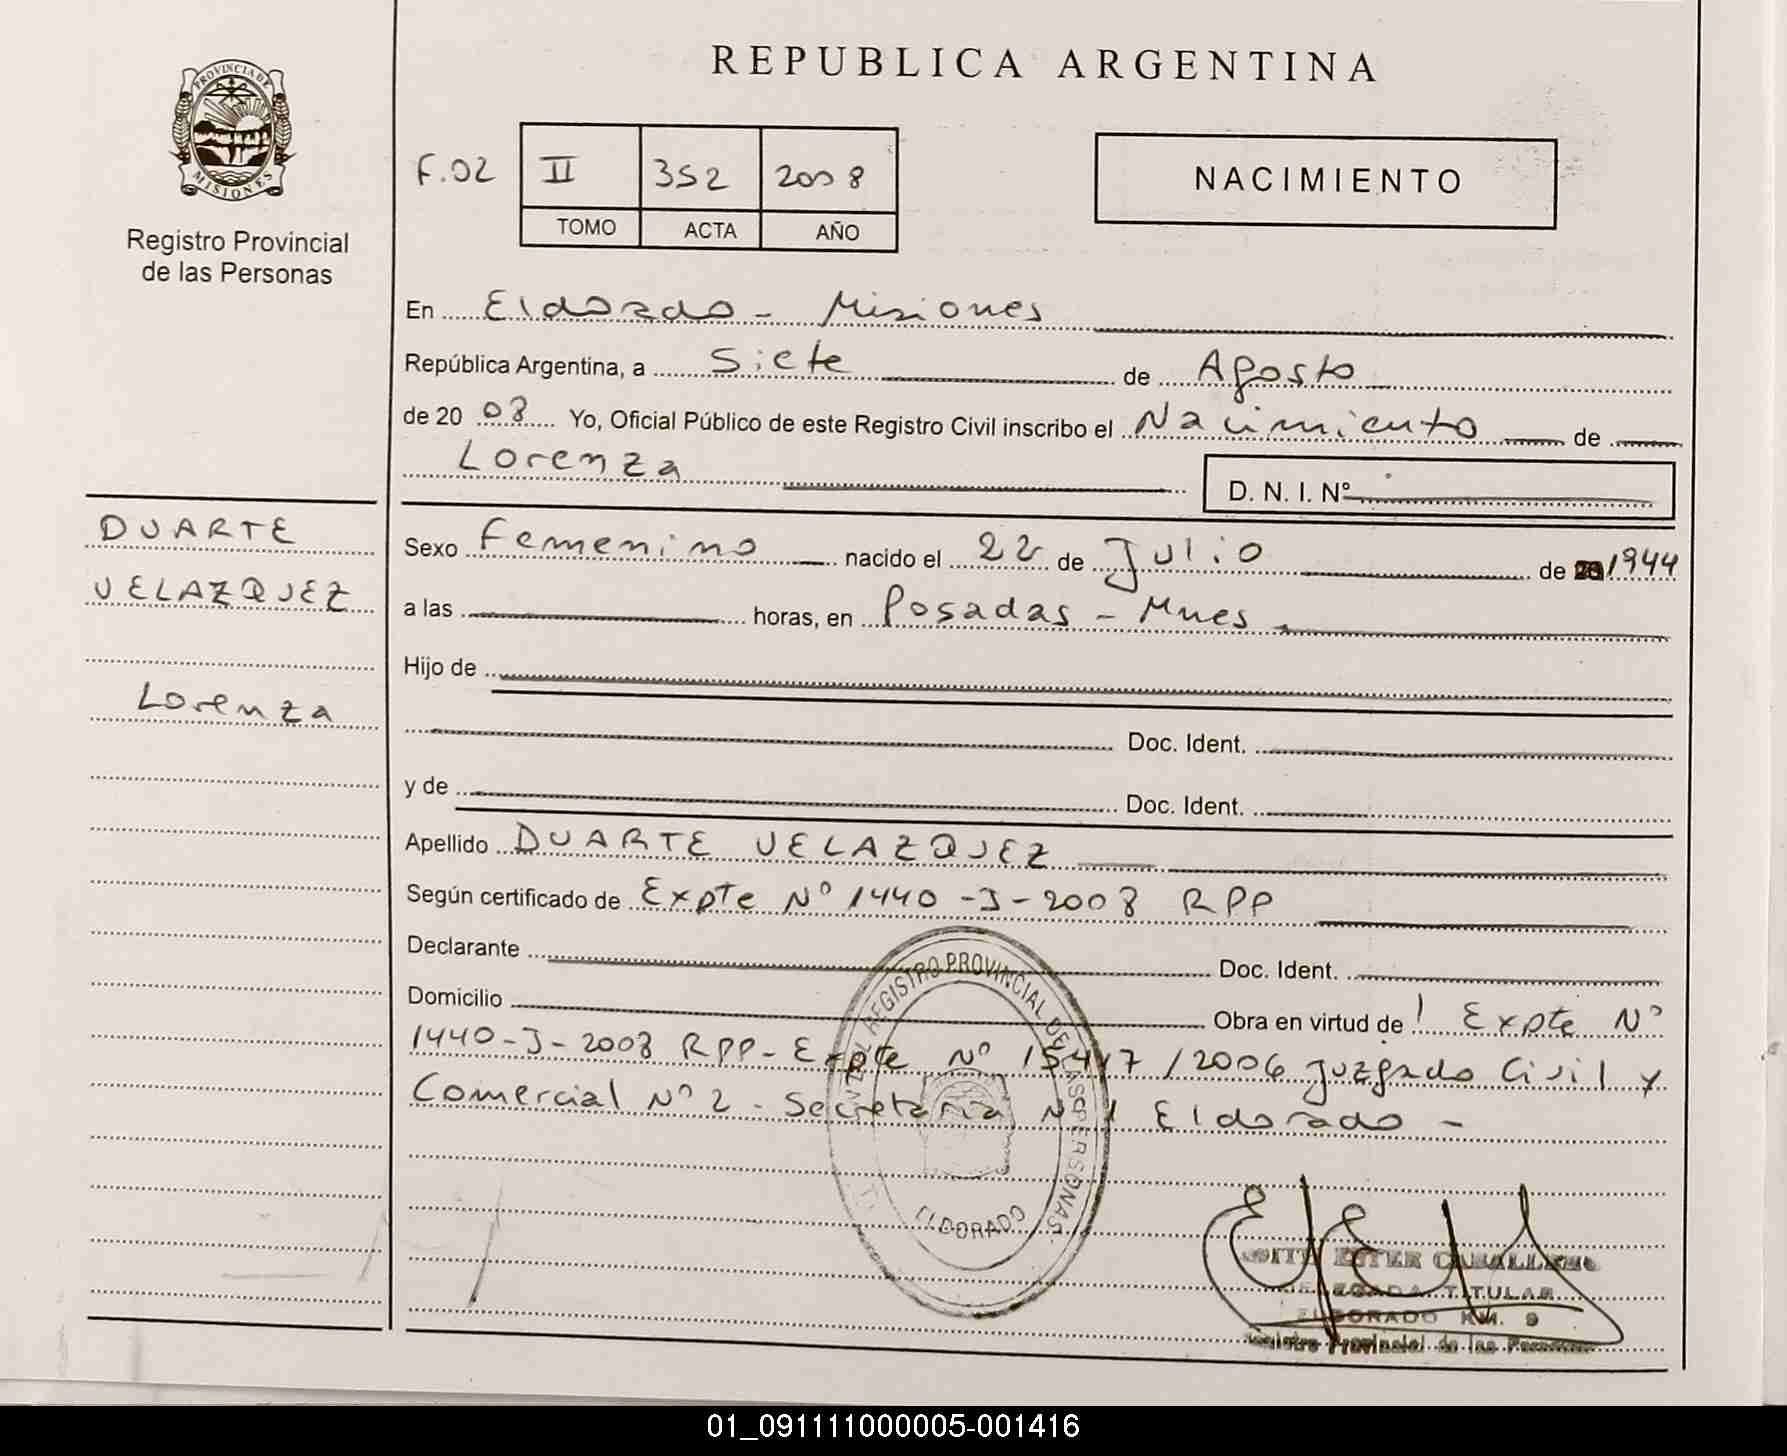 REPUBLICA ARGENTINA
PROVINCIA DE MISIONES
Registro Provincial
de las Personas
F.02 II 352 2008
TOMO ACTA AÑO
NACIMIENTO
En Eldorado - Misiones
República Argentina, a Siete de Agosto
de 20 08 Yo, Oficial Público de este Registro Civil inscribo el Nacimiento de
Lorenza
D. N. I. Nº
DUARTE
VELAZQUEZ
Lorenza
Sexo Femenino nacido el 22 de Julio de 1944
a las horas, en Posadas - Mnes
Hijo de
Doc. Ident.
y de Doc. Ident.
Apellido DUARTE VELAZQUEZ
Según certificado de Expte Nº 1440-J-2008 RPP
Declarante Doc. Ident.
Domicilio Obra en virtud de Expte Nº
1440-J-2008 RPP- Expte Nº /2006 Juzgado Civil y
Comercial Nº 2 - Secretaria Nº 1 Eldorado -
REGISTRO PROVINCIAL DE LAS PERSONAS
ELDORADO
ESTER
DELEGADA TITULAR
ELDORADO KM. 9
Registro Provincial de las Personas
01_091111000005-001416